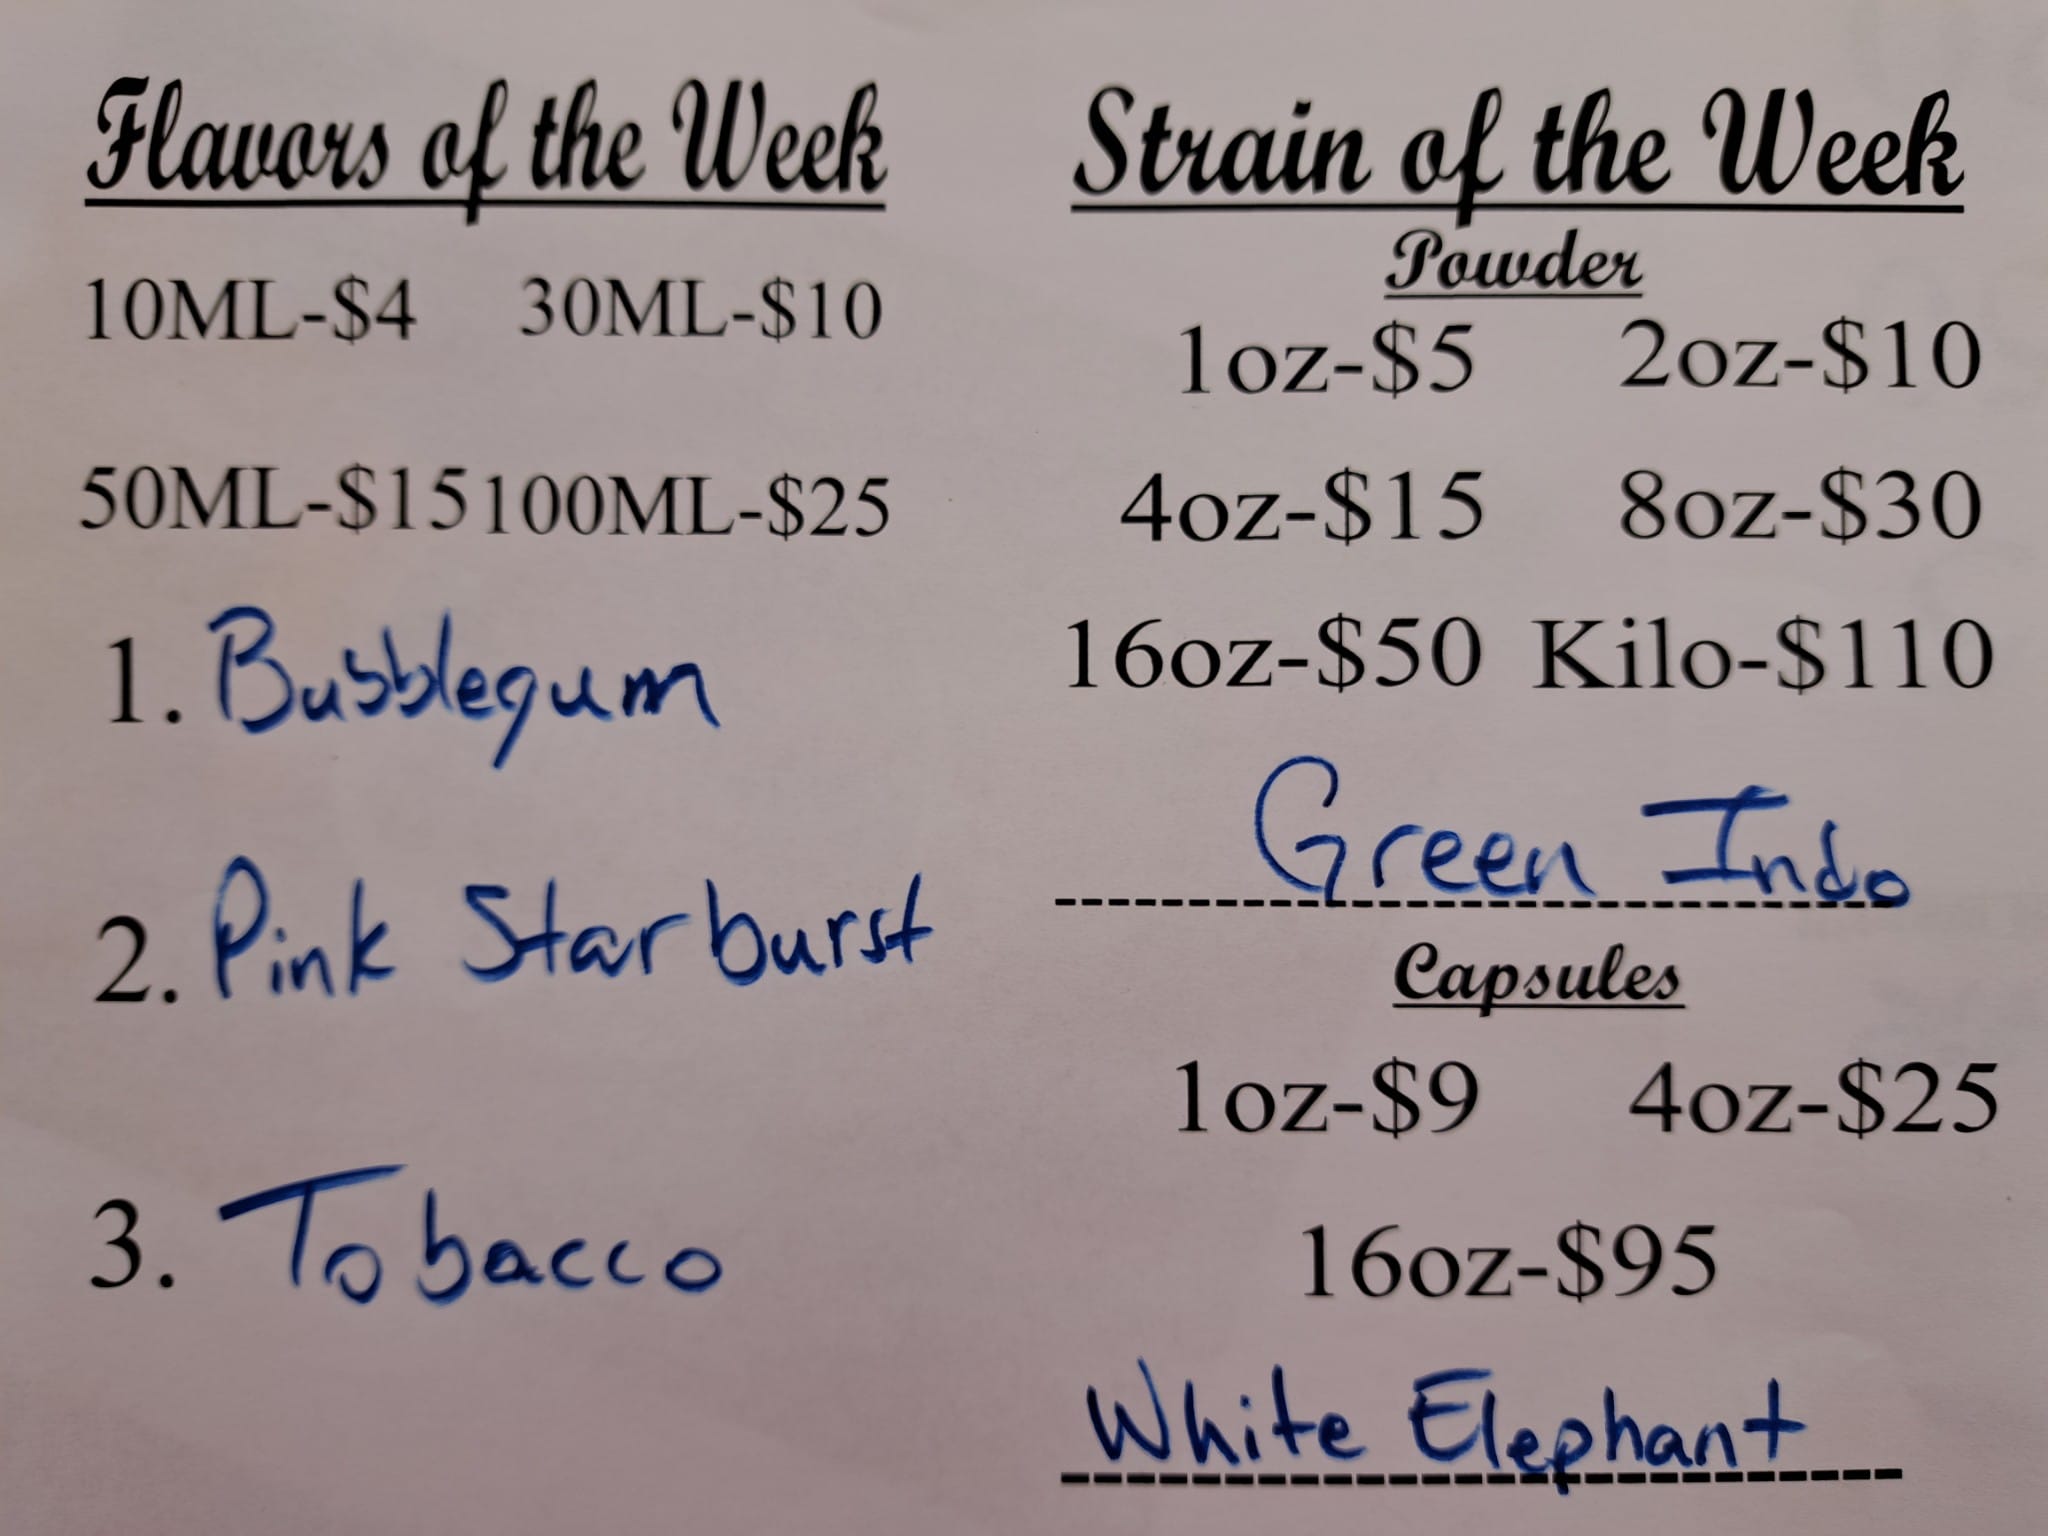 Flavors of the Week
10ML-$4 30ML-$10
50ML-$15 100ML-$25
1. Bubblegum
2. Pink Starburst
3. Tobacco
Strain of the Week
Powder
1oz-$5 2oz-$10
4oz-$15 8oz-$30
16oz-$50 Kilo-$110
Green Indo
Capsules
1oz-$9 4oz-$25
16oz-$95
White Elephant